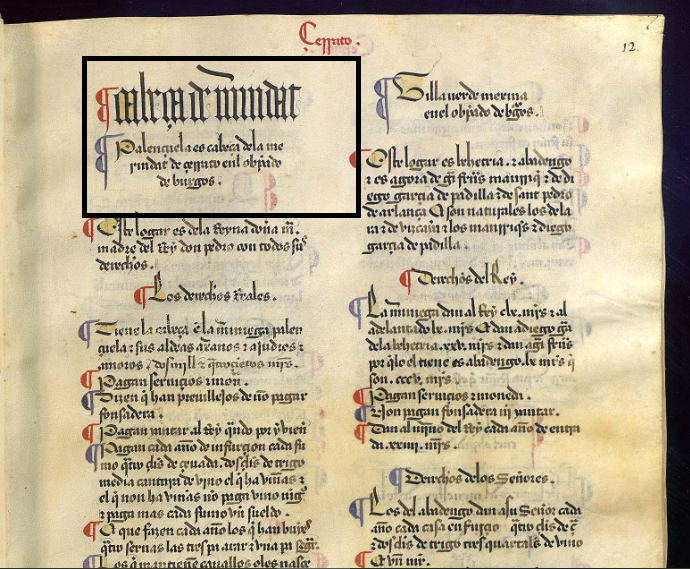 Cerrato.
12
cabeça de merindat
Palençuela es cabeça dela me
rindat de çerrato enl obpado
de burgos.
Este logar es dela Reyna doña m.
madre del Rey don pedro con todos sus
derechos.
Los derechos Reales.
Tiene la cabeça la martiniega palen
çuela z sus aldeas z
z mrs.
Pagan serviçios z mon.
Dizen q han previllejos de no pagar
fonsadera.
Pagan yantar al Rey qndo por y vien
Pagan cada año de infurçion cada fu
mo qtro çls de çevada. dos çls de trigo
media cantara de vino el q ha viñas z
el q non ha viñas no paga vino nig
z paga mas cada fumo vn sueldo.
O que fazen cada año los q han bueyes
qtro sernas las tres pa arar z vna pa segar.
Los q mantiene cavallos
Villa verde merina
enel obpado de bgos.
Este logar es behetria. z abadengo
z es agora de manriq z de di
ego garçia de padilla z de sant pedro
de arlança E son naturales los de la
ra z de vizcaya z los manriqs z diego
garçia de padilla.
Derechos del Rey.
La mniega dan al Rey mrs z al
adelantado mrs E dan a diego ga
dela behetria. mrs z dan
por qlo el tiene es abadengo. mrs q
son. mrs
Pagan serviçios z moneda.
Non pagan fonsadera ni yantar.
Dan al merino del Rey cada año de entra
da. mrs.
Derechos delos Señores.
Los del abadengo dan a su Señor cada
año cada casa en furçio qtro çls de ç
z dos çls de trigo tres quartals de vino